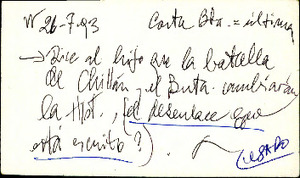 26-7-93 Carta Bto. = última
→ Dice al hijo que la batalla
de Chillán, el Bnta. cambiarán
la Hist., (el desenlace que
está escrito?)
(USADO)